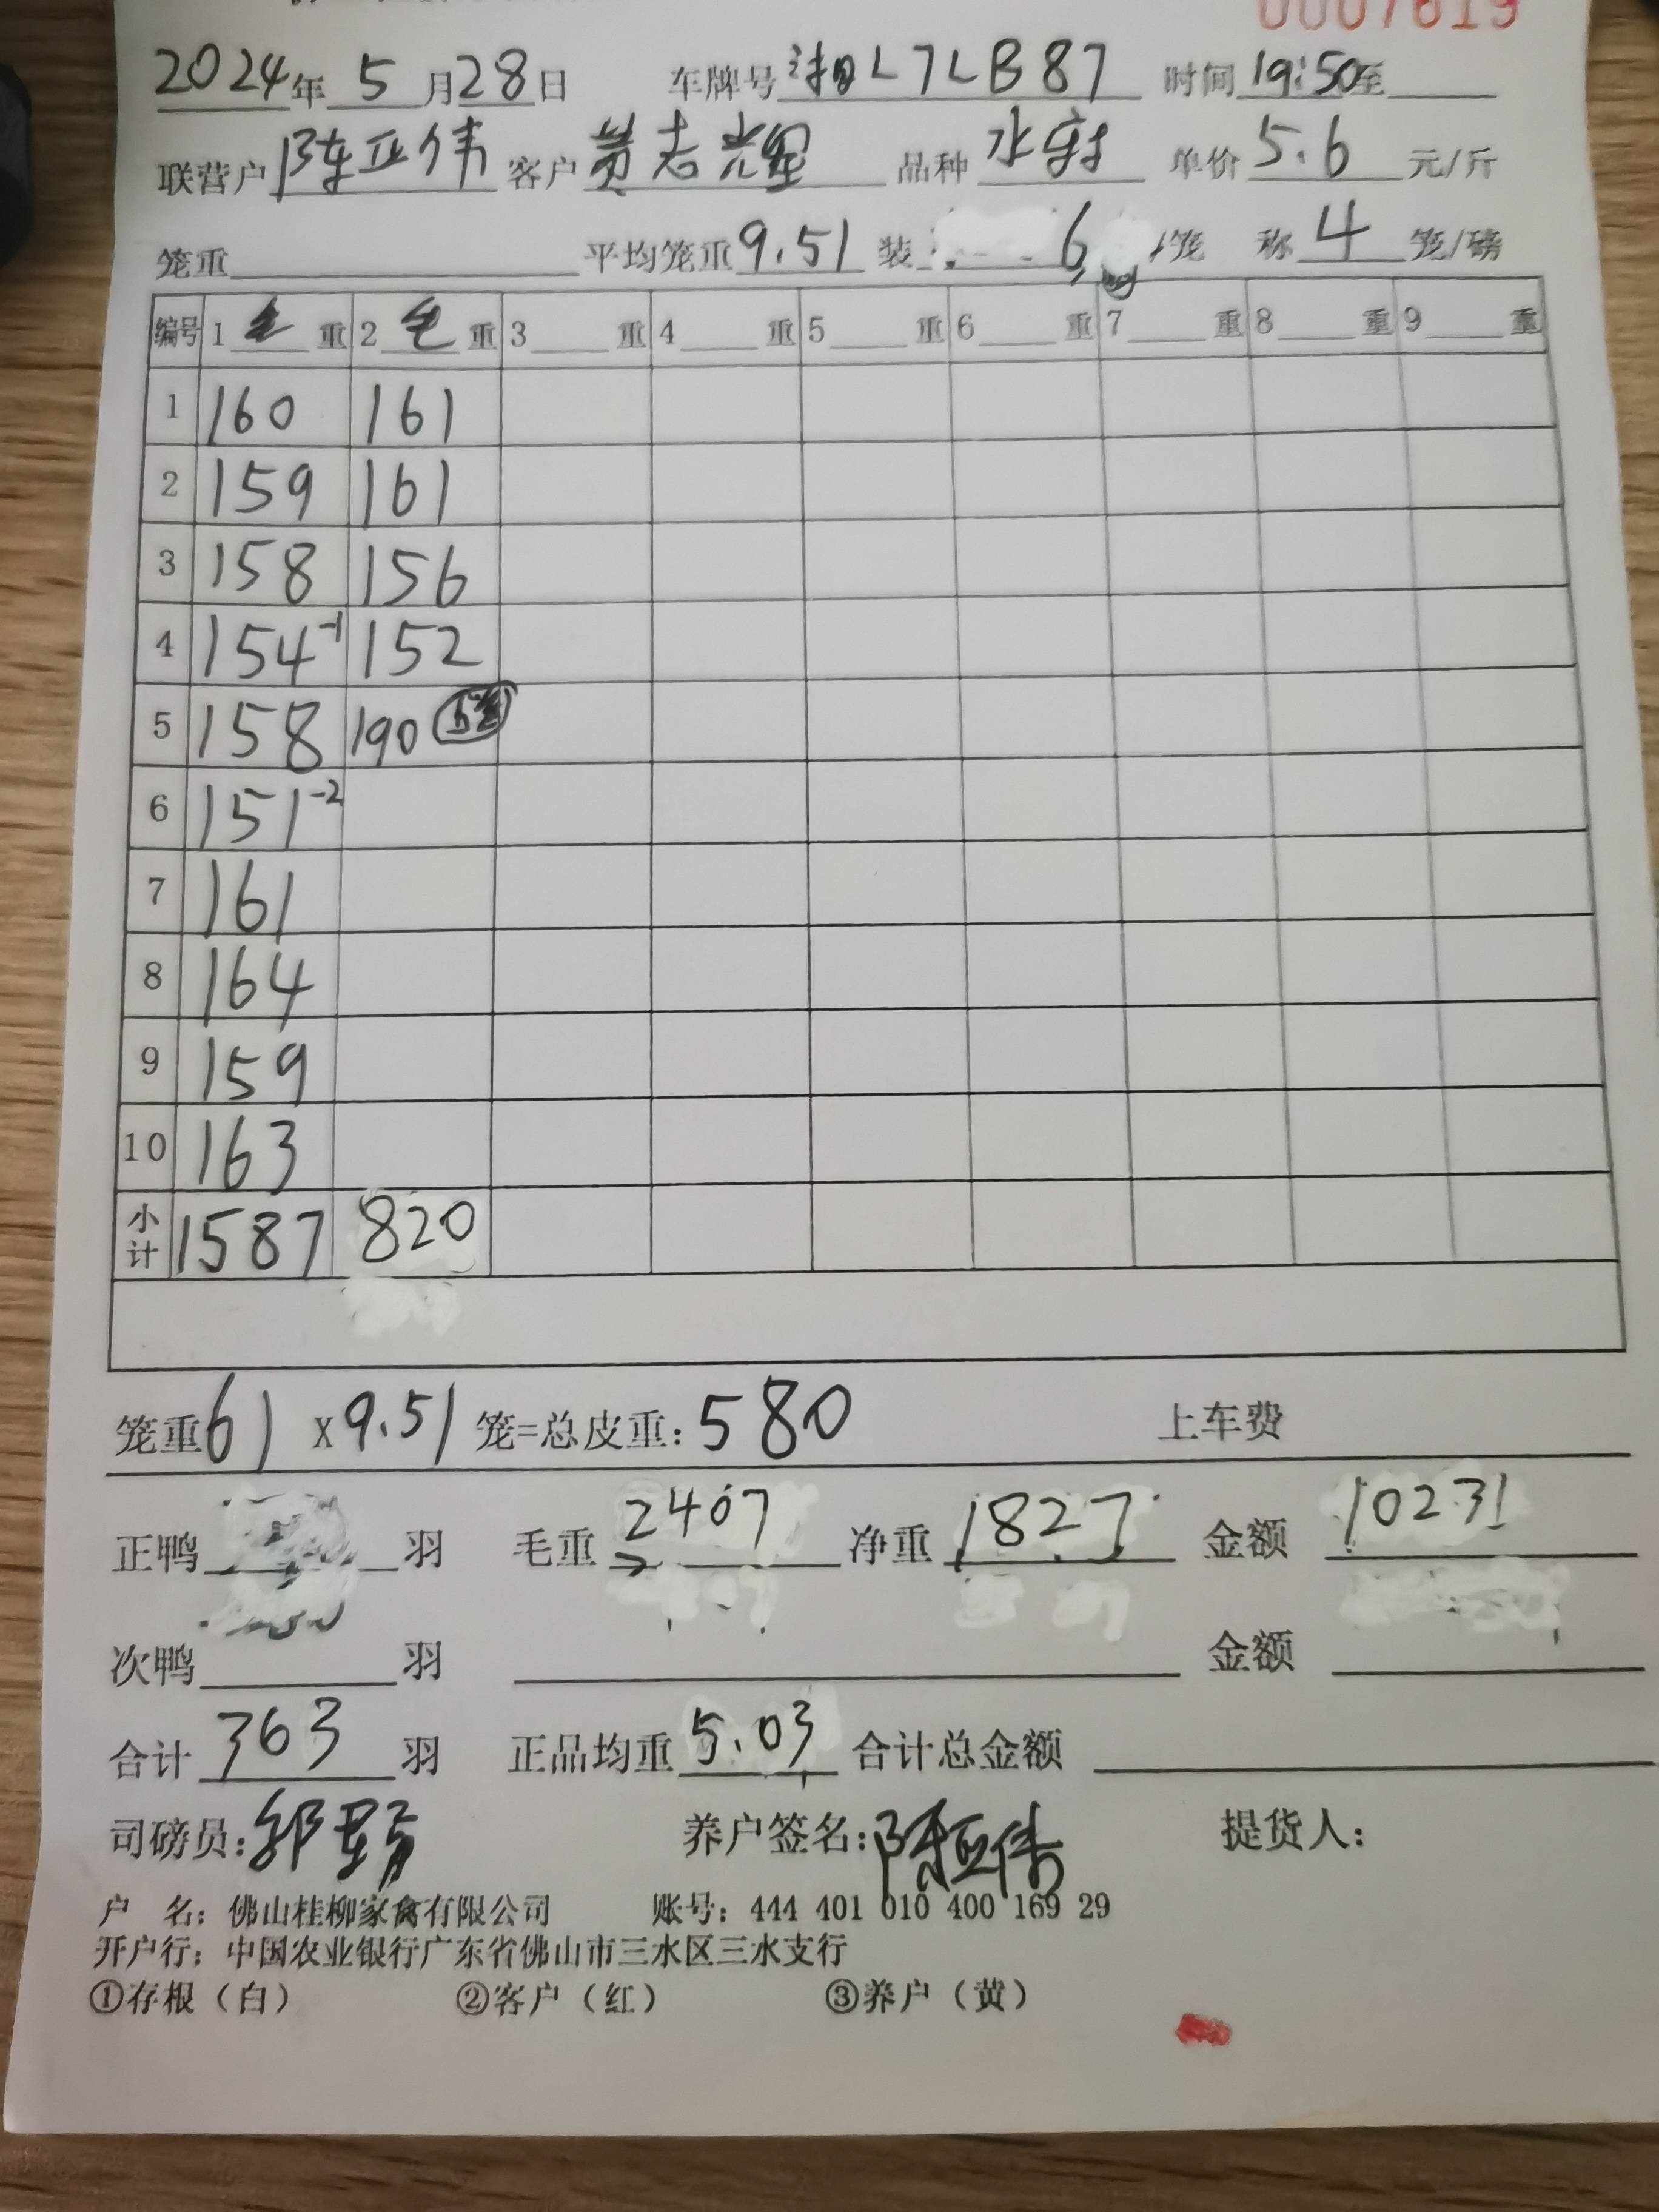 0007619
2024年 5 月 28 日 车牌号 湘L7LB87 时间 19:50 至
联营户 陈亚伟 客户 黄志耀 品种 水鸭 单价 5.6 元/斤
笼重 平均笼重 9.51 装 6 /笼 称 4 笼/磅
编号 1 毛 重 2 毛 重 3 重 4 重 5 重 6 重 7 重 8 重 9 重
1 160 161
2 159 161
3 158 156
4 154-1 152
5 158 190
6 151-2
7 161
8 164
9 159
10 163
小计 1587 820
笼重 61 X 9.51 笼=总皮重: 580 上车费
正鸭 羽 毛重 2407 净重 1827 金额 10231
次鸭 羽 金额
合计 363 羽 正品均重 5.03 合计总金额
司磅员: 养户签名: 陈亚伟 提货人:
户 名: 佛山桂柳家禽有限公司 账号: 444 401 010 400 169 29
开户行: 中国农业银行广东省佛山市三水区三水支行
①存根（白） ②客户（红） ③养户（黄）